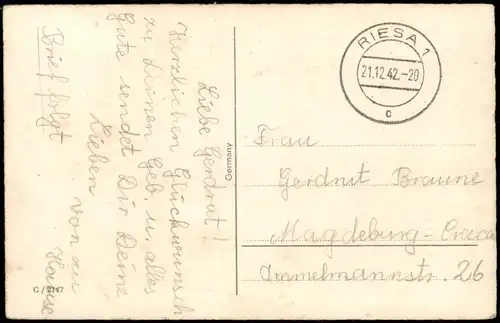 Liebe Gerdrut!
Herzlichen Glückwunsch
zu Deinen Geb. u. alles
Gute sendet Dir Deine
Lieben
von zu
Hause
Brief folgt
Germany
RIESA 1
21.12.42.-20
c
Frau
Gerdrut Braune
Magdeburg-Cracau
Immelmannstr. 26